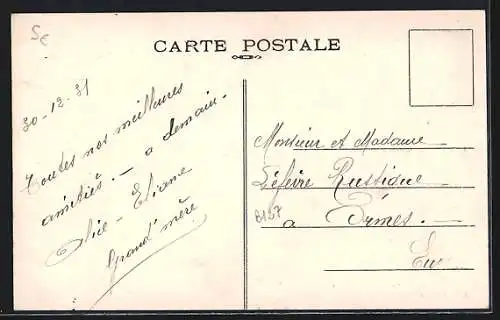 5€
CARTE POSTALE
30-12-31
Toutes nos meilleures
amitiés. — a demain.
Alice - Eliane
Grand' mère
Monsieur et Madame
Lefèvre Rustique
B127
a Ormes. —